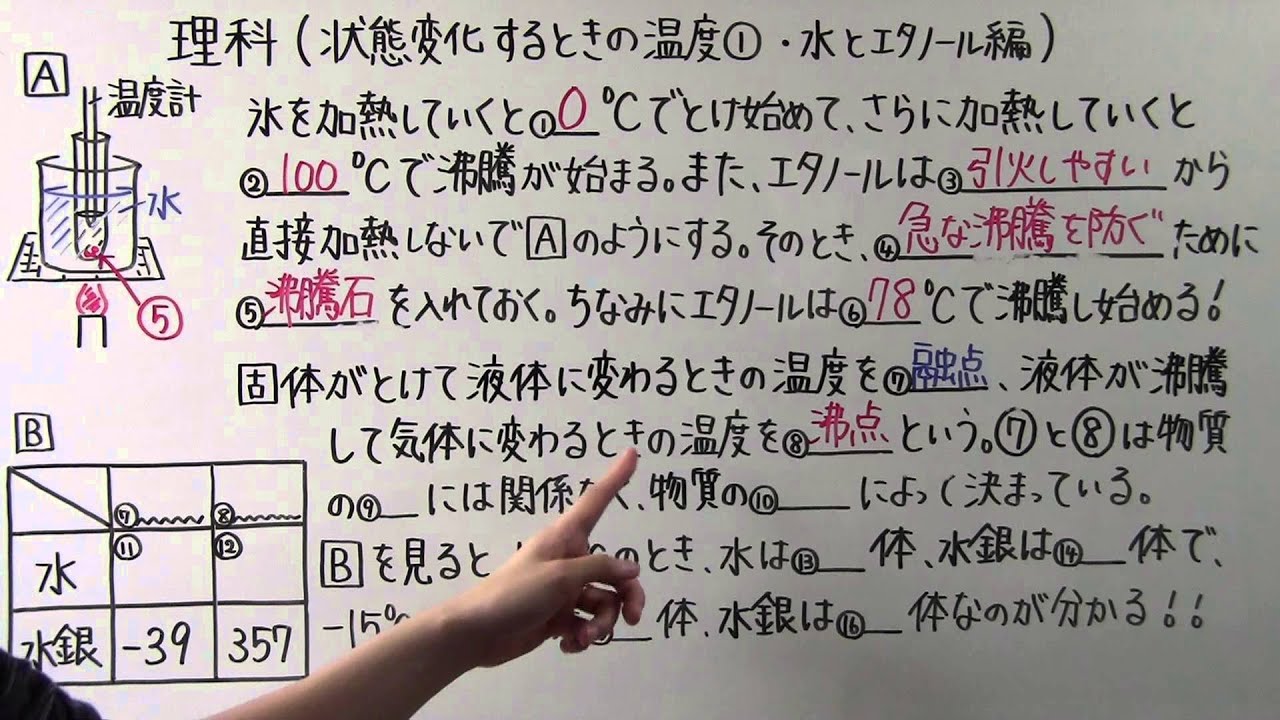 理科(状態変化するときの温度①・水とエタノール編)
A
温度計
水
⑤
氷を加熱していくと①0℃でとけ始めて、さらに加熱していくと
②100℃で沸騰が始まる。また、エタノールは③引火しやすいから
直接加熱しないでAのようにする。そのとき、④急な沸騰を防ぐために
⑤沸騰石を入れておく。ちなみにエタノールは⑥78℃で沸騰し始める!
固体がとけて液体に変わるときの温度を⑦融点、液体が沸騰
して気体に変わるときの温度を⑧沸点という。⑦と⑧は物質
の⑨__には関係なく、物質の⑩___によって決まっている。
B
⑦ ⑧
水 ⑪ ⑫
水銀 -39 357
Bを見ると、 のとき、水は⑬__体、水銀は⑭__体で、
-15℃ __体、水銀は⑯__体なのが分かる!!